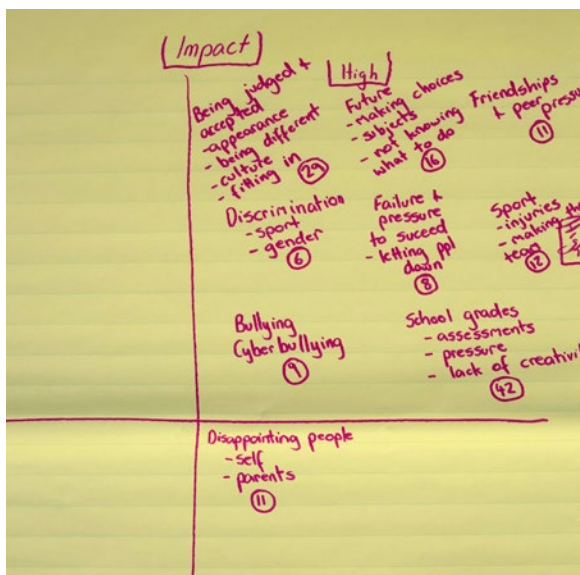 [Impact]
[High]
Being judged +
accepted
- appearance
- being different
- culture
- fitting in
29
Future
- Making choices
- subjects
- not knowing
what to do
16
Friendships
+ peer
pressure
11
Discrimination
- sport
- gender
6
Failure +
pressure
to suceed
- letting ppl
down
8
Sport
- injuries
- making the
team
12
Bullying
Cyberbullying
9
School grades
- assessments
- pressure
- lack of creativi
42
Disappointing people
- self
- parents
11